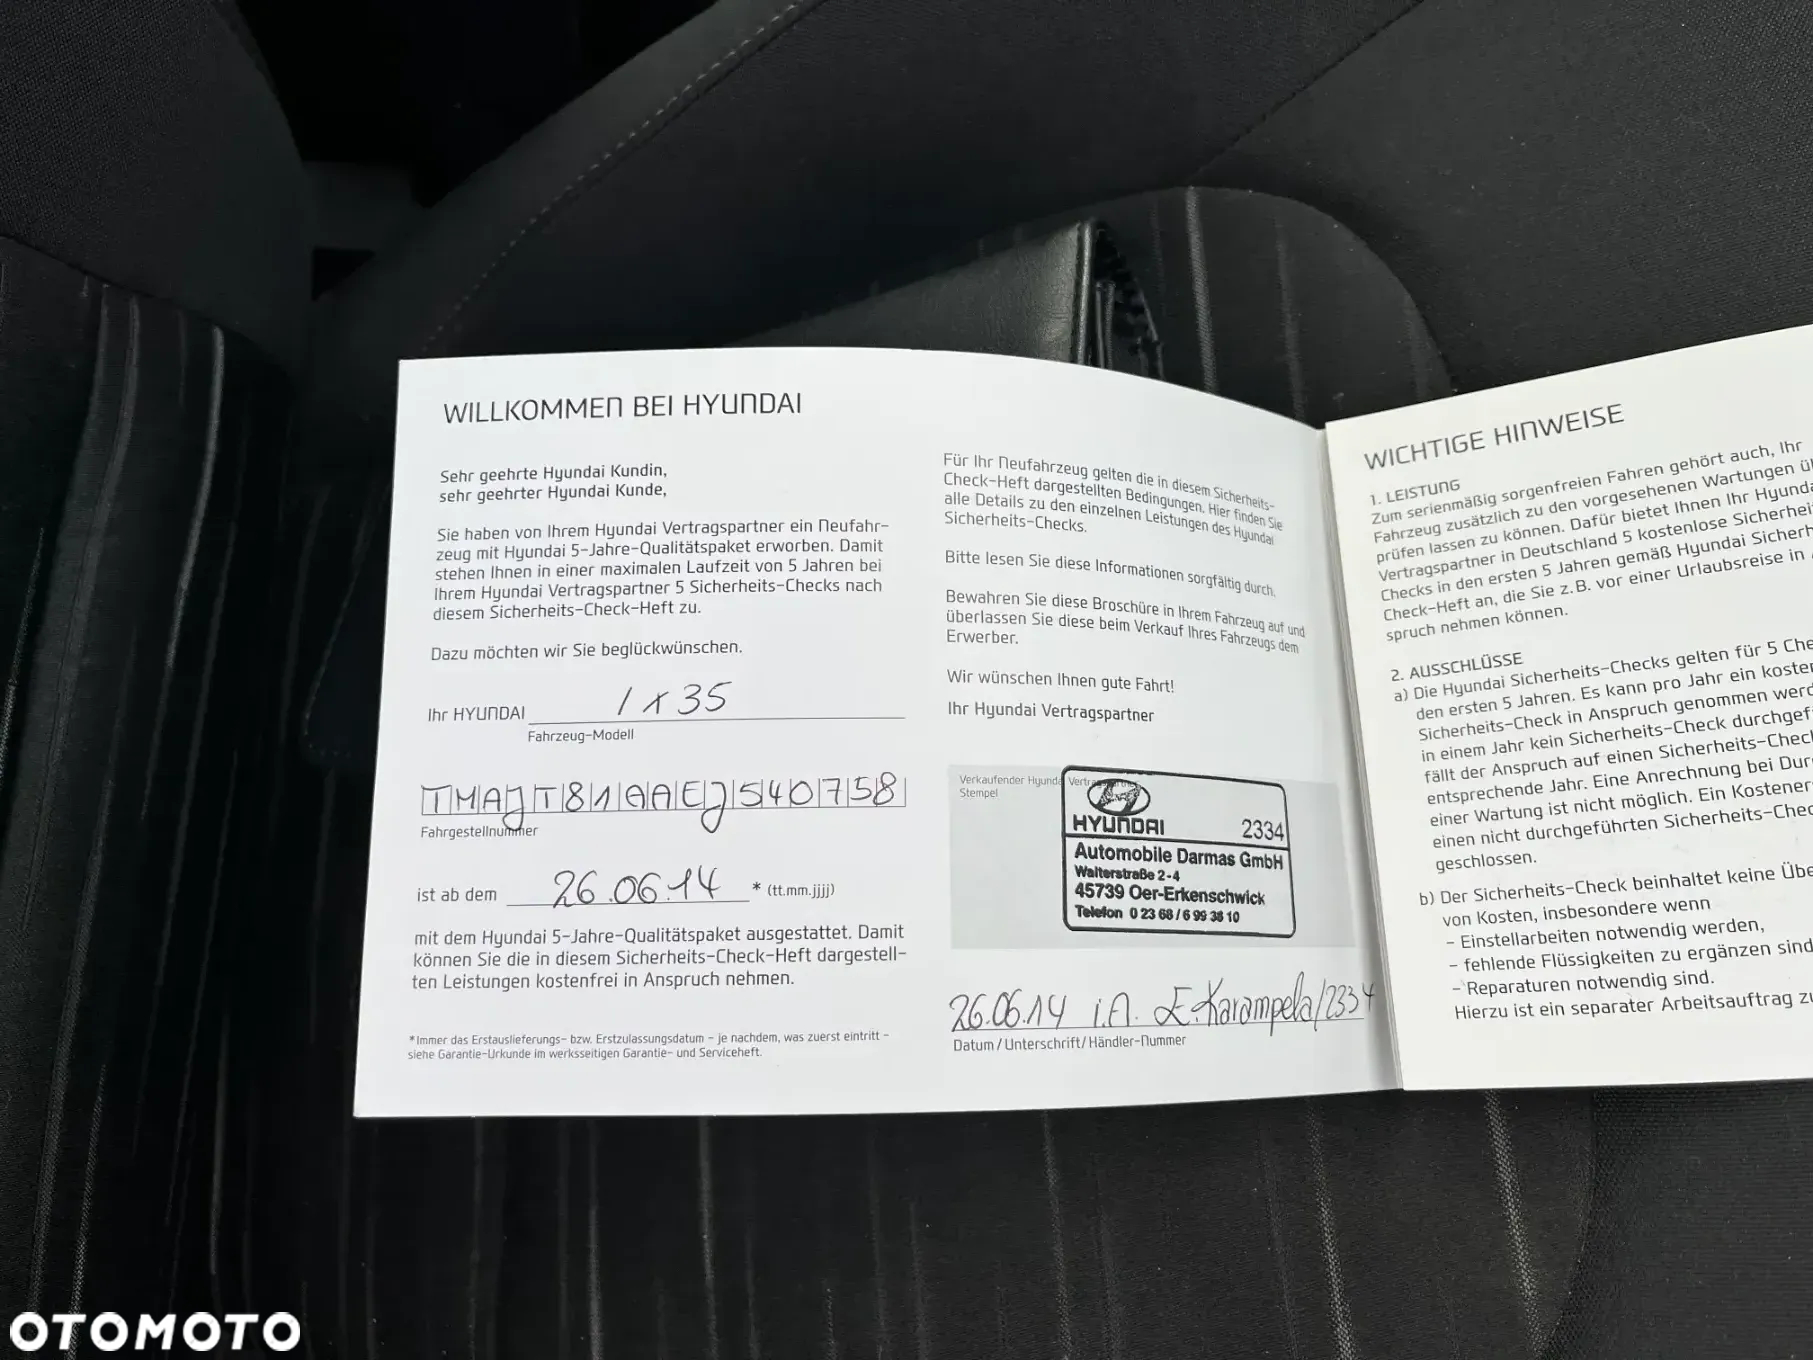 WILLKOMMEN BEI HYUNDAI
Sehr geehrte Hyundai Kundin,
sehr geehrter Hyundai Kunde,
Sie haben von Ihrem Hyundai Vertragspartner ein Neufahr-
zeug mit Hyundai 5-Jahre-Qualitätspaket erworben. Damit
stehen Ihnen in einer maximalen Laufzeit von 5 Jahren bei
Ihrem Hyundai Vertragspartner 5 Sicherheits-Checks nach
diesem Sicherheits-Check-Heft zu.
Dazu möchten wir Sie beglückwünschen.
Ihr HYUNDAI IX35
Fahrzeug-Modell
TMAJT81AAEJ540758
Fahrgestellnummer
ist ab dem 26.06.14 * (tt.mm.jjjj)
mit dem Hyundai 5-Jahre-Qualitätspaket ausgestattet. Damit
können Sie die in diesem Sicherheits-Check-Heft dargestell-
ten Leistungen kostenfrei in Anspruch nehmen.
*Immer das Erstauslieferungs- bzw. Erstzulassungsdatum - je nachdem, was zuerst eintritt -
siehe Garantie-Urkunde im werksseitigen Garantie- und Serviceheft.
Für Ihr Neufahrzeug gelten die in diesem Sicherheits-
Check-Heft dargestellten Bedingungen. Hier finden Sie
alle Details zu den einzelnen Leistungen des Hyundai
Sicherheits-Checks.
Bitte lesen Sie diese Informationen sorgfältig durch.
Bewahren Sie diese Broschüre in Ihrem Fahrzeug auf und
überlassen Sie diese beim Verkauf Ihres Fahrzeugs dem
Erwerber.
Wir wünschen Ihnen gute Fahrt!
Ihr Hyundai Vertragspartner
Verkaufender Hyundai
Stempel
HYUNDAI 2334
Automobile Darmas GmbH
Walterstraße 2-4
45739 Oer-Erkenschwick
Telefon 0 23 68 / 6 99 38 10
26.06.14 i.A. E.Karampela/2334
Datum / Unterschrift/ Händler-Nummer
WICHTIGE HINWEISE
1. LEISTUNG
Zum serienmäßig sorgenfreien Fahren gehört auch, Ihr
Fahrzeug zusätzlich zu den vorgesehenen Wartungen ü
prüfen lassen zu können. Dafür bietet Ihnen Ihr Hyunda
Vertragspartner in Deutschland 5 kostenlose Sicherhei
Checks in den ersten 5 Jahren gemäß Hyundai Sicherh
Check-Heft an, die Sie z.B. vor einer Urlaubsreise in A
spruch nehmen können.
2. AUSSCHLÜSSE
a) Die Hyundai Sicherheits-Checks gelten für 5 Che
den ersten 5 Jahren. Es kann pro Jahr ein kosten
Sicherheits-Check in Anspruch genommen werd
in einem Jahr kein Sicherheits-Check durchgef
fällt der Anspruch auf einen Sicherheits-Chec
entsprechende Jahr. Eine Anrechnung bei Dur
einer Wartung ist nicht möglich. Ein Kostener
einen nicht durchgeführten Sicherheits-Chec
geschlossen.
b) Der Sicherheits-Check beinhaltet keine Übe
von Kosten, insbesondere wenn
- Einstellarbeiten notwendig werden,
- fehlende Flüssigkeiten zu ergänzen sind
- Reparaturen notwendig sind.
Hierzu ist ein separater Arbeitsauftrag zu
OTOMOTO